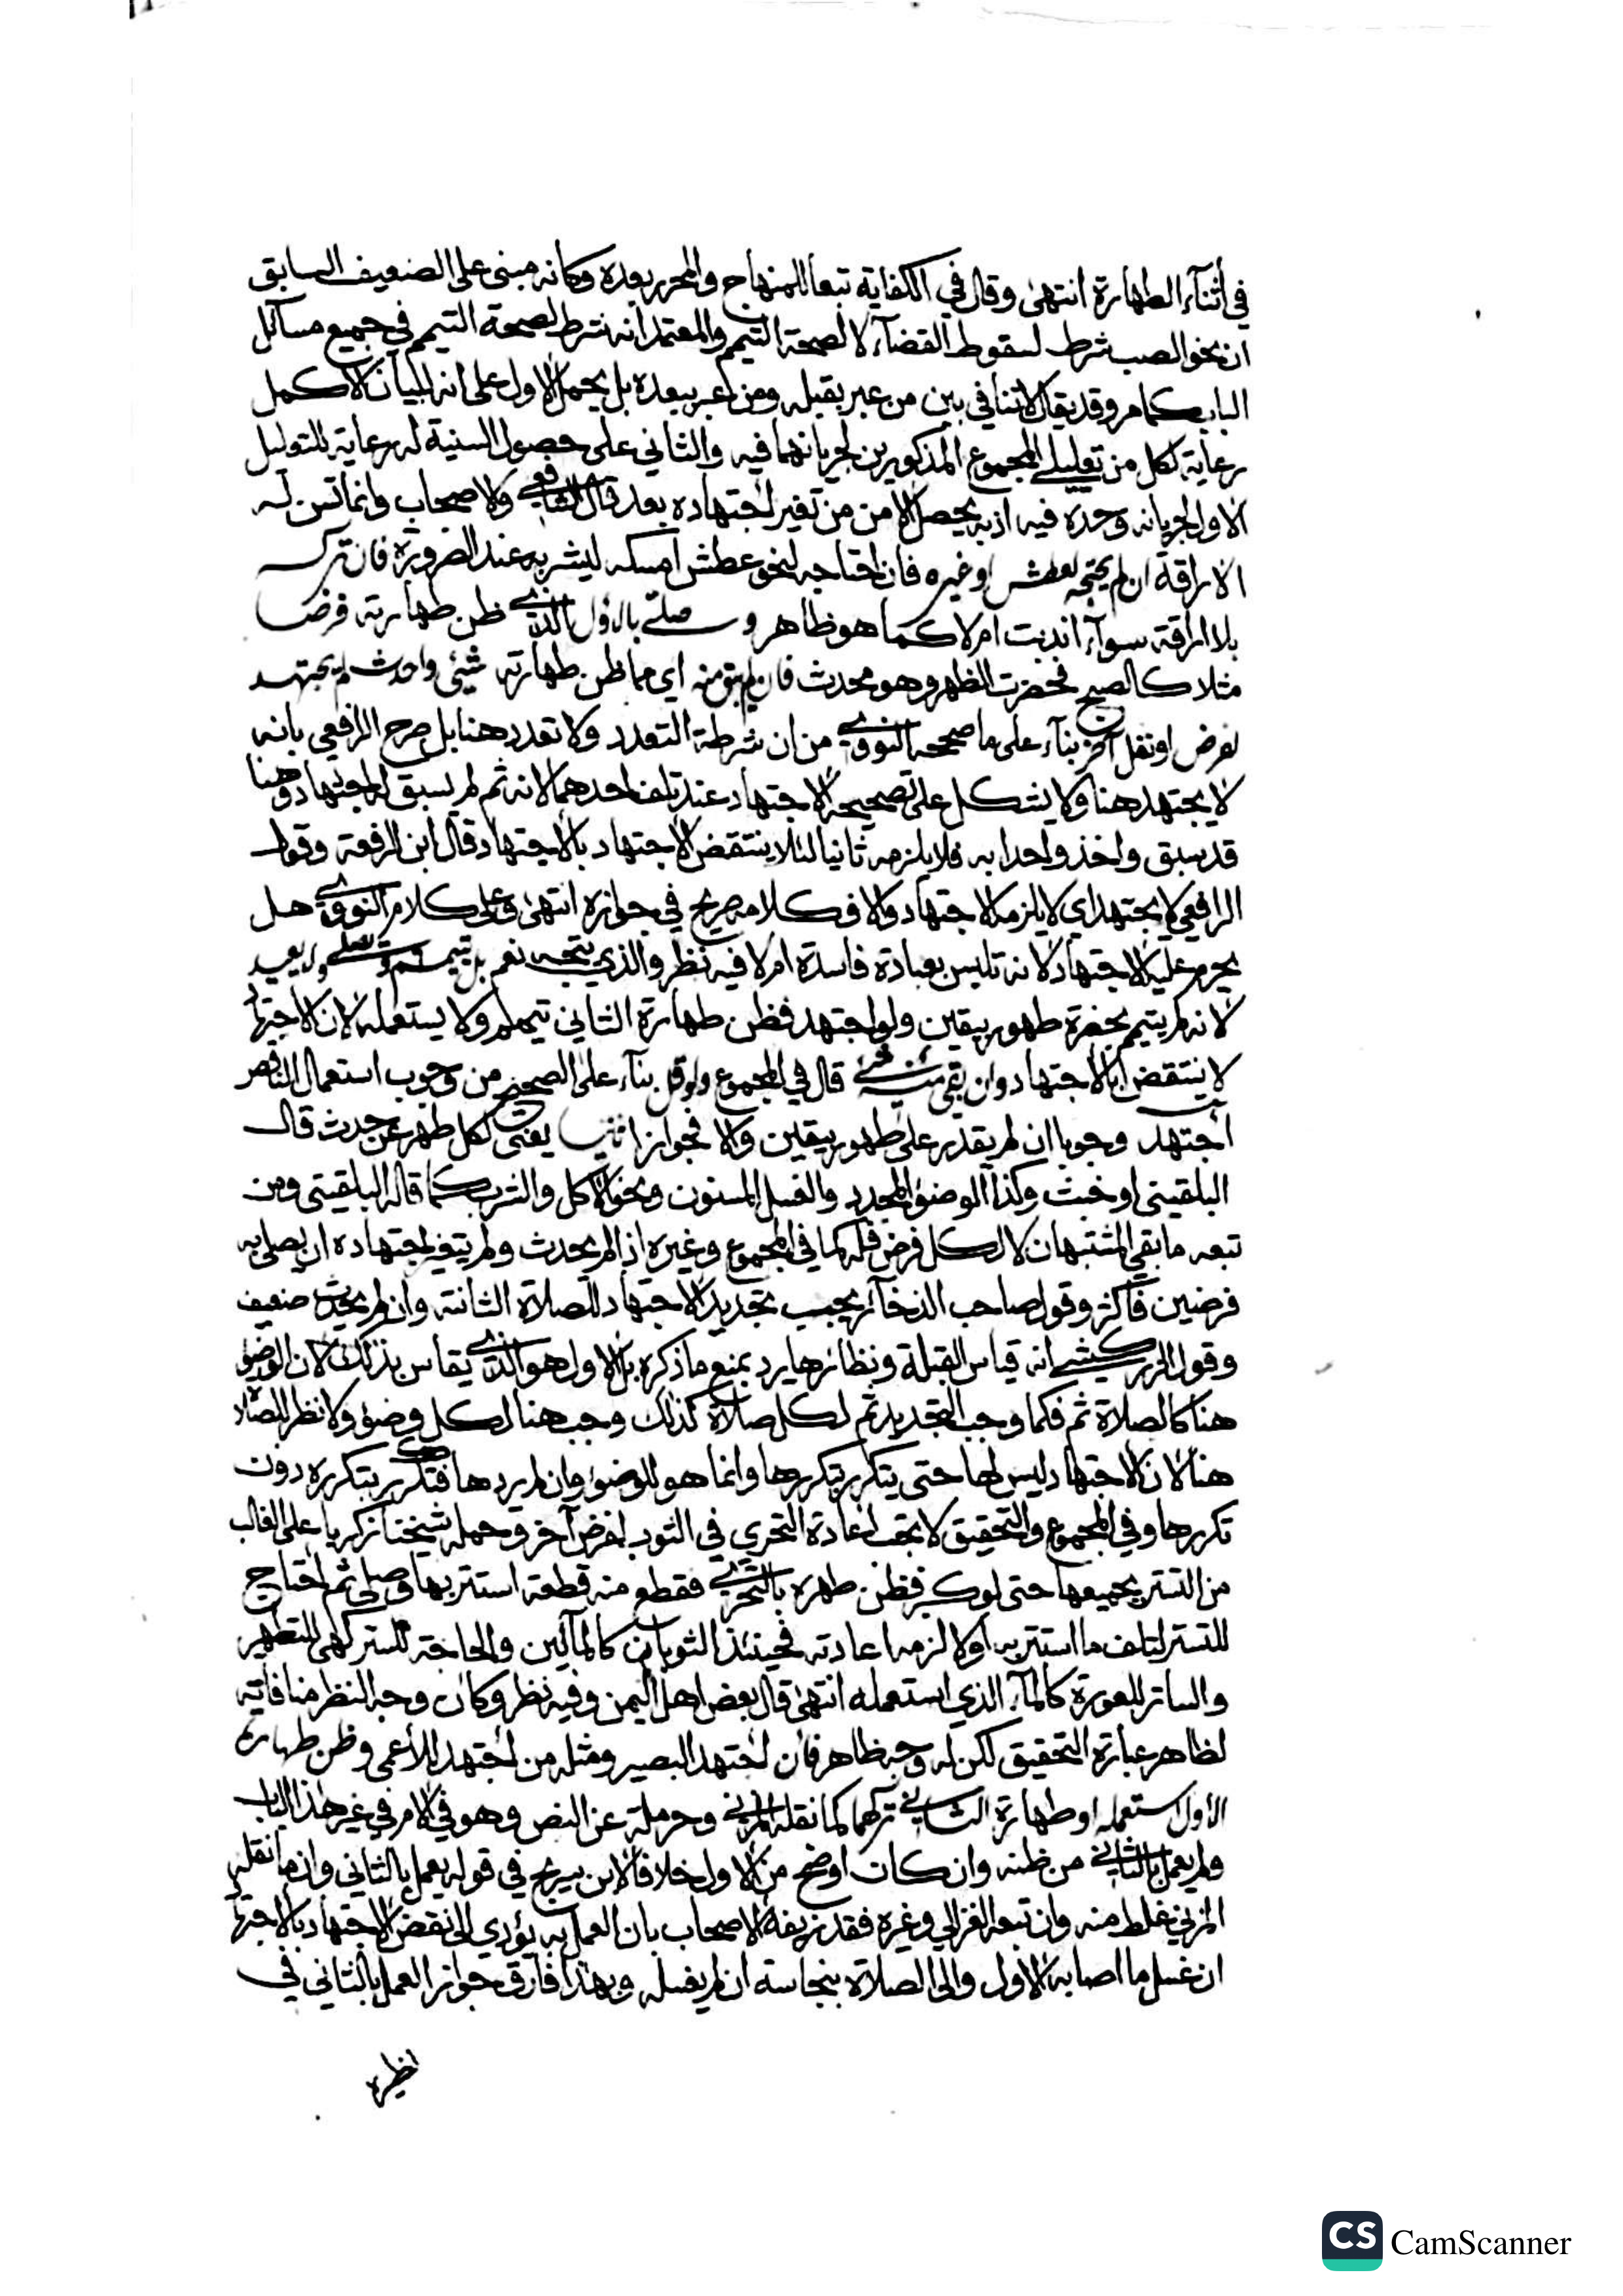 في أثناء الطهارة انتهى وقال في الكفاية تبعا للمنهاج والمحرر بعده وكانه مبنى على الضعيف السابق
ان نحو الصب شرط لسقوط القضاء لا لصحة التيمم والمعتمد انه شرط لصحة التيمم في جميع مسائل
الباب كما مر وقد يقال لا تنافي بين من عبر بقبله ومن عبر ببعده بل يحمل الاول على انه لبيان الاكمل
رعاية لكل من تعليلي المجموع المذكورين لجريانهما فيه والثاني على حصول السنية له رعاية للتعليل
الاول لجريانه وحده فيه اذ به يحصل الامن من تغير اجتهاده بعد قال الشافعي والاصحاب وانما تسن له
الاراقة ان لم يحتجه لعطش او غيره فان احتاجه لنحو عطش امسكه ليشربه عند الضرورة فان تركه
بلا اراقة سواء اندبت ام لا كما هو ظاهر وصلى بالاول الذي ظن طهارته فرضا
مثلا كالصبح فحضرت الظهر وهو محدث فان لم يبق منه اي مما ظن طهارته شيئ واحدث لم يجتهد
لفرض او نفل آخر بناء على ما صححه النووي من ان شرطه التعدد ولا تعدد هنا بل صرح الرافعي بانه
لا يجتهد هنا ولا يشكل على تصحيحه الاجتهاد عند تلف احدهما لانه ثم لم يسبق له اجتهاد وهنا
قد سبق واخذ واحدا به فلا يلزمه ثانيا لئلا ينتقض الاجتهاد بالاجتهاد قال ابن الرفعة وقول
الرافعي لا يجتهد اي لا يلزمه الاجتهاد والا فكلامه صريح في جوازه انتهى وعلى كلام النووي هل
يحرم عليه الاجتهاد لانه تلبس بعبادة فاسدة ام لا فيه نظر والذي يتجه نعم بل تيمم وصلى ولا يعيد
لانه لم يتيمم بحضرة طهور بيقين ولو اجتهد فظن طهارة الثاني تيمم ولا يستعمله لان الاجتهاد
لا ينتقض بالاجتهاد وان بقي منه شيء قال في المجموع ولو قل بناء على الصحيح من وجوب استعمال الناقص
اجتهد وجوبا ان لم يقدر على طهور بيقين والا فجوازا ثانيا يعني لكل طهر عن حدث قال
البلقيني او خبث وكذا الوضوء المجدد والغسل المسنون ونحو الاكل والشرب كما قاله البلقيني ومن
تبعه ما بقي المشتبهان لا لكل فرض فله كما في المجموع وغيره اذا لم يحدث ولم يتغير اجتهاده ان يصلي به
فرضين فاكثر وقول صاحب الذخائر يجب تجديد الاجتهاد للصلاة الثانية وان لم يحدث ضعيف
وقول الزركشي انه قياس القبلة ونظائرها يرد بمنع ما ذكره بل الاول هو الذي يقاس بذلك لان الوضوء
هنا كالصلاة ثم فكما وجب التجديد ثم لكل صلاة كذلك وجب هنا لكل وضوء ولا نظر للصلاة
هنا لان الاجتهاد ليس لها حتى يتكرر بتكررها وانما هو للوضوء وان لم يردها فتكرر بتكرره دون
تكررها وفي المجموع والتحقيق لا تجب اعادة التحري في الثوب لفرض آخر وحمله شيخنا زكريا على الغالب
من التستر بجميعها حتى لو كبر فظن طهره بالتحري فقطع منه قطعة استتر بها وصلى ثم احتاج
للتستر لتلف ما استتر به اولا لزمه اعادته فحينئذ الثوبان كالمآئين والحاجة للستر كهي للتطهير
والساتر للعورة كالماء الذي استعمله انتهى قال بعض اهل اليمن وفيه نظر وكان وجه النظر منافاته
لظاهر عبارة التحقيق لكن له وجه ظاهر فان اجتهد البصير ومثله من اجتهد للأعمى وظن طهارة
الأول استعمله او طهارة الثاني تركهما كما نقله المزني وحرملة عن النص وهو في الامر في غير هذا الباب
ولم يعمل بالثاني من ظنه وان كان اوضح من الاول خلافا لابن سريج في قوله يعمل بالثاني وان ما نقله
المزني غلط منه وان تبعه الغزالي وغيره فقد زيفه الاصحاب بان العمل به يؤدي الى نقض الاجتهاد بالاجتهاد
ان غسل ما اصابه الاول والى الصلاة بنجاسة ان لم يغسله وبهذا فارق جواز العمل بالثاني في
نظيره
CS CamScanner